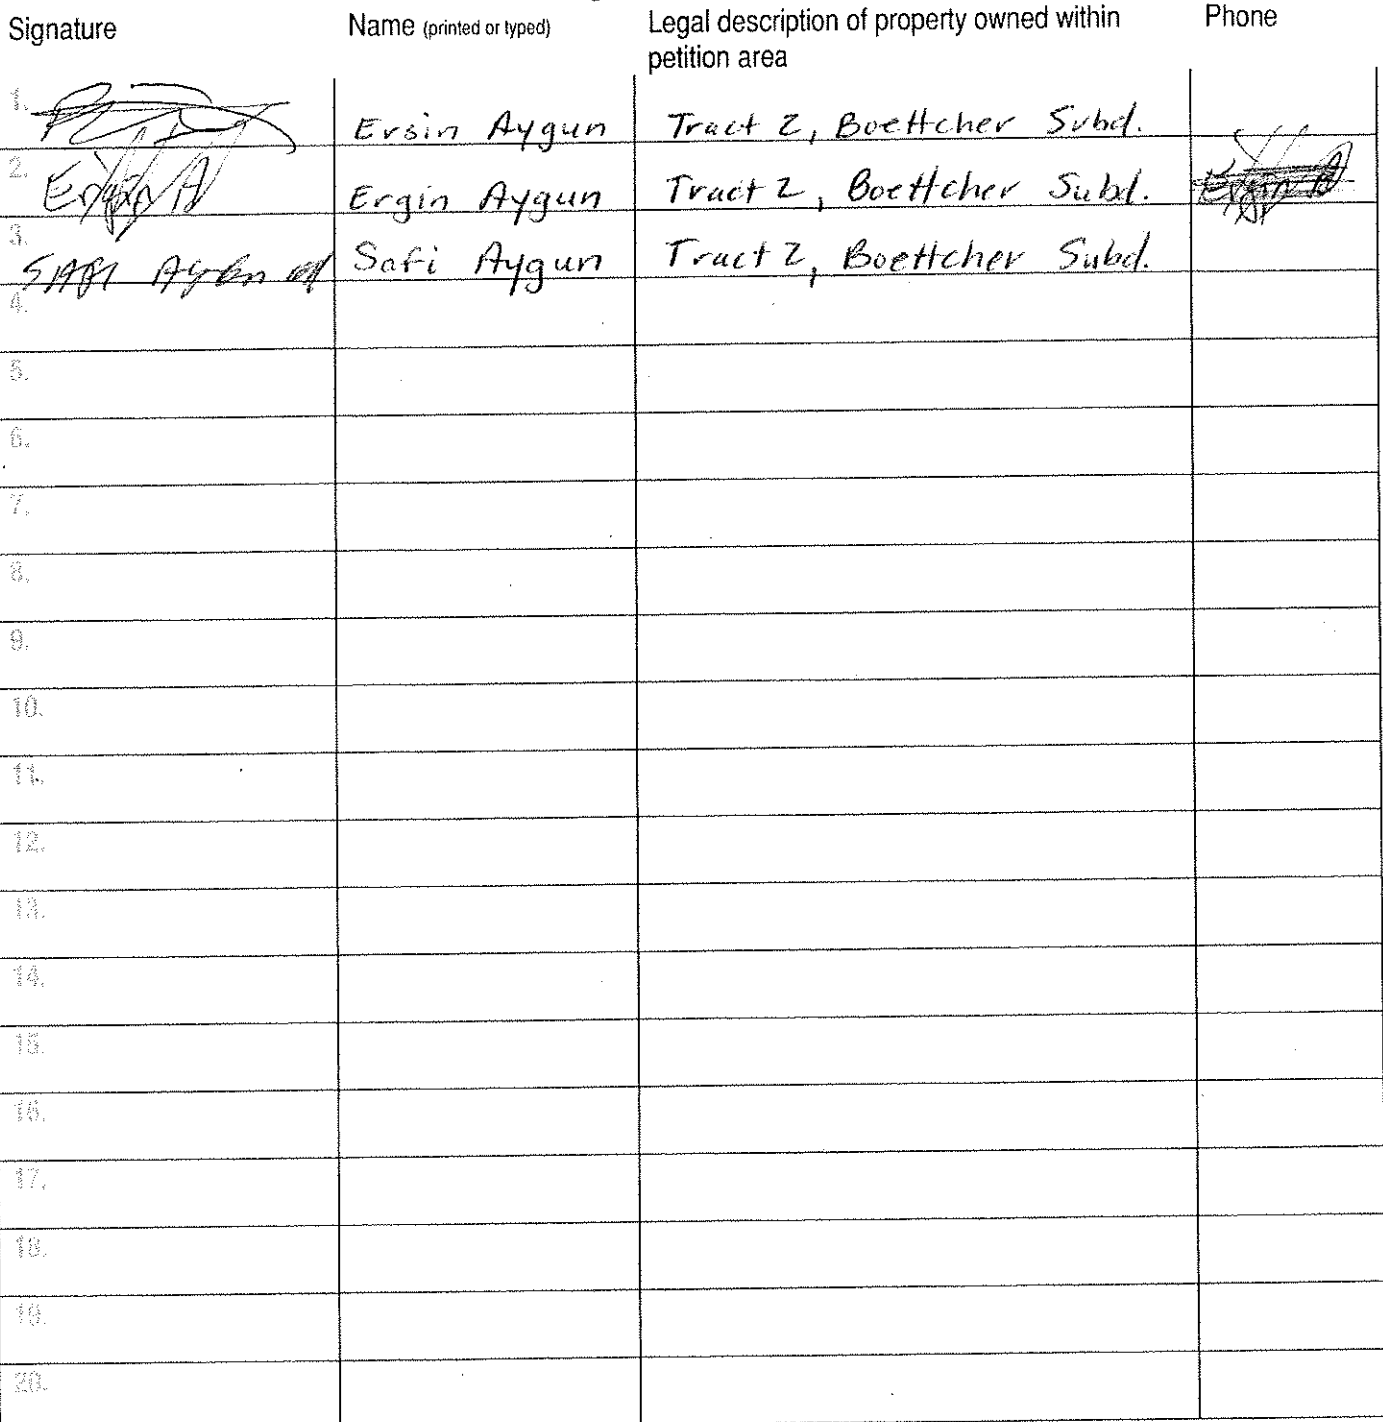 Signature Name (printed or typed) Legal description of property owned within petition area Phone
1. Ersin Aygun Tract 2, Boettcher Subd.
2. Ergin A Ergin Aygun Tract 2, Boettcher Subd.
3. Safi Aygun Tract 2, Boettcher Subd.
4.
5.
6.
7.
8.
9.
10.
11.
12.
13.
14.
15.
16.
17.
18.
19.
20.